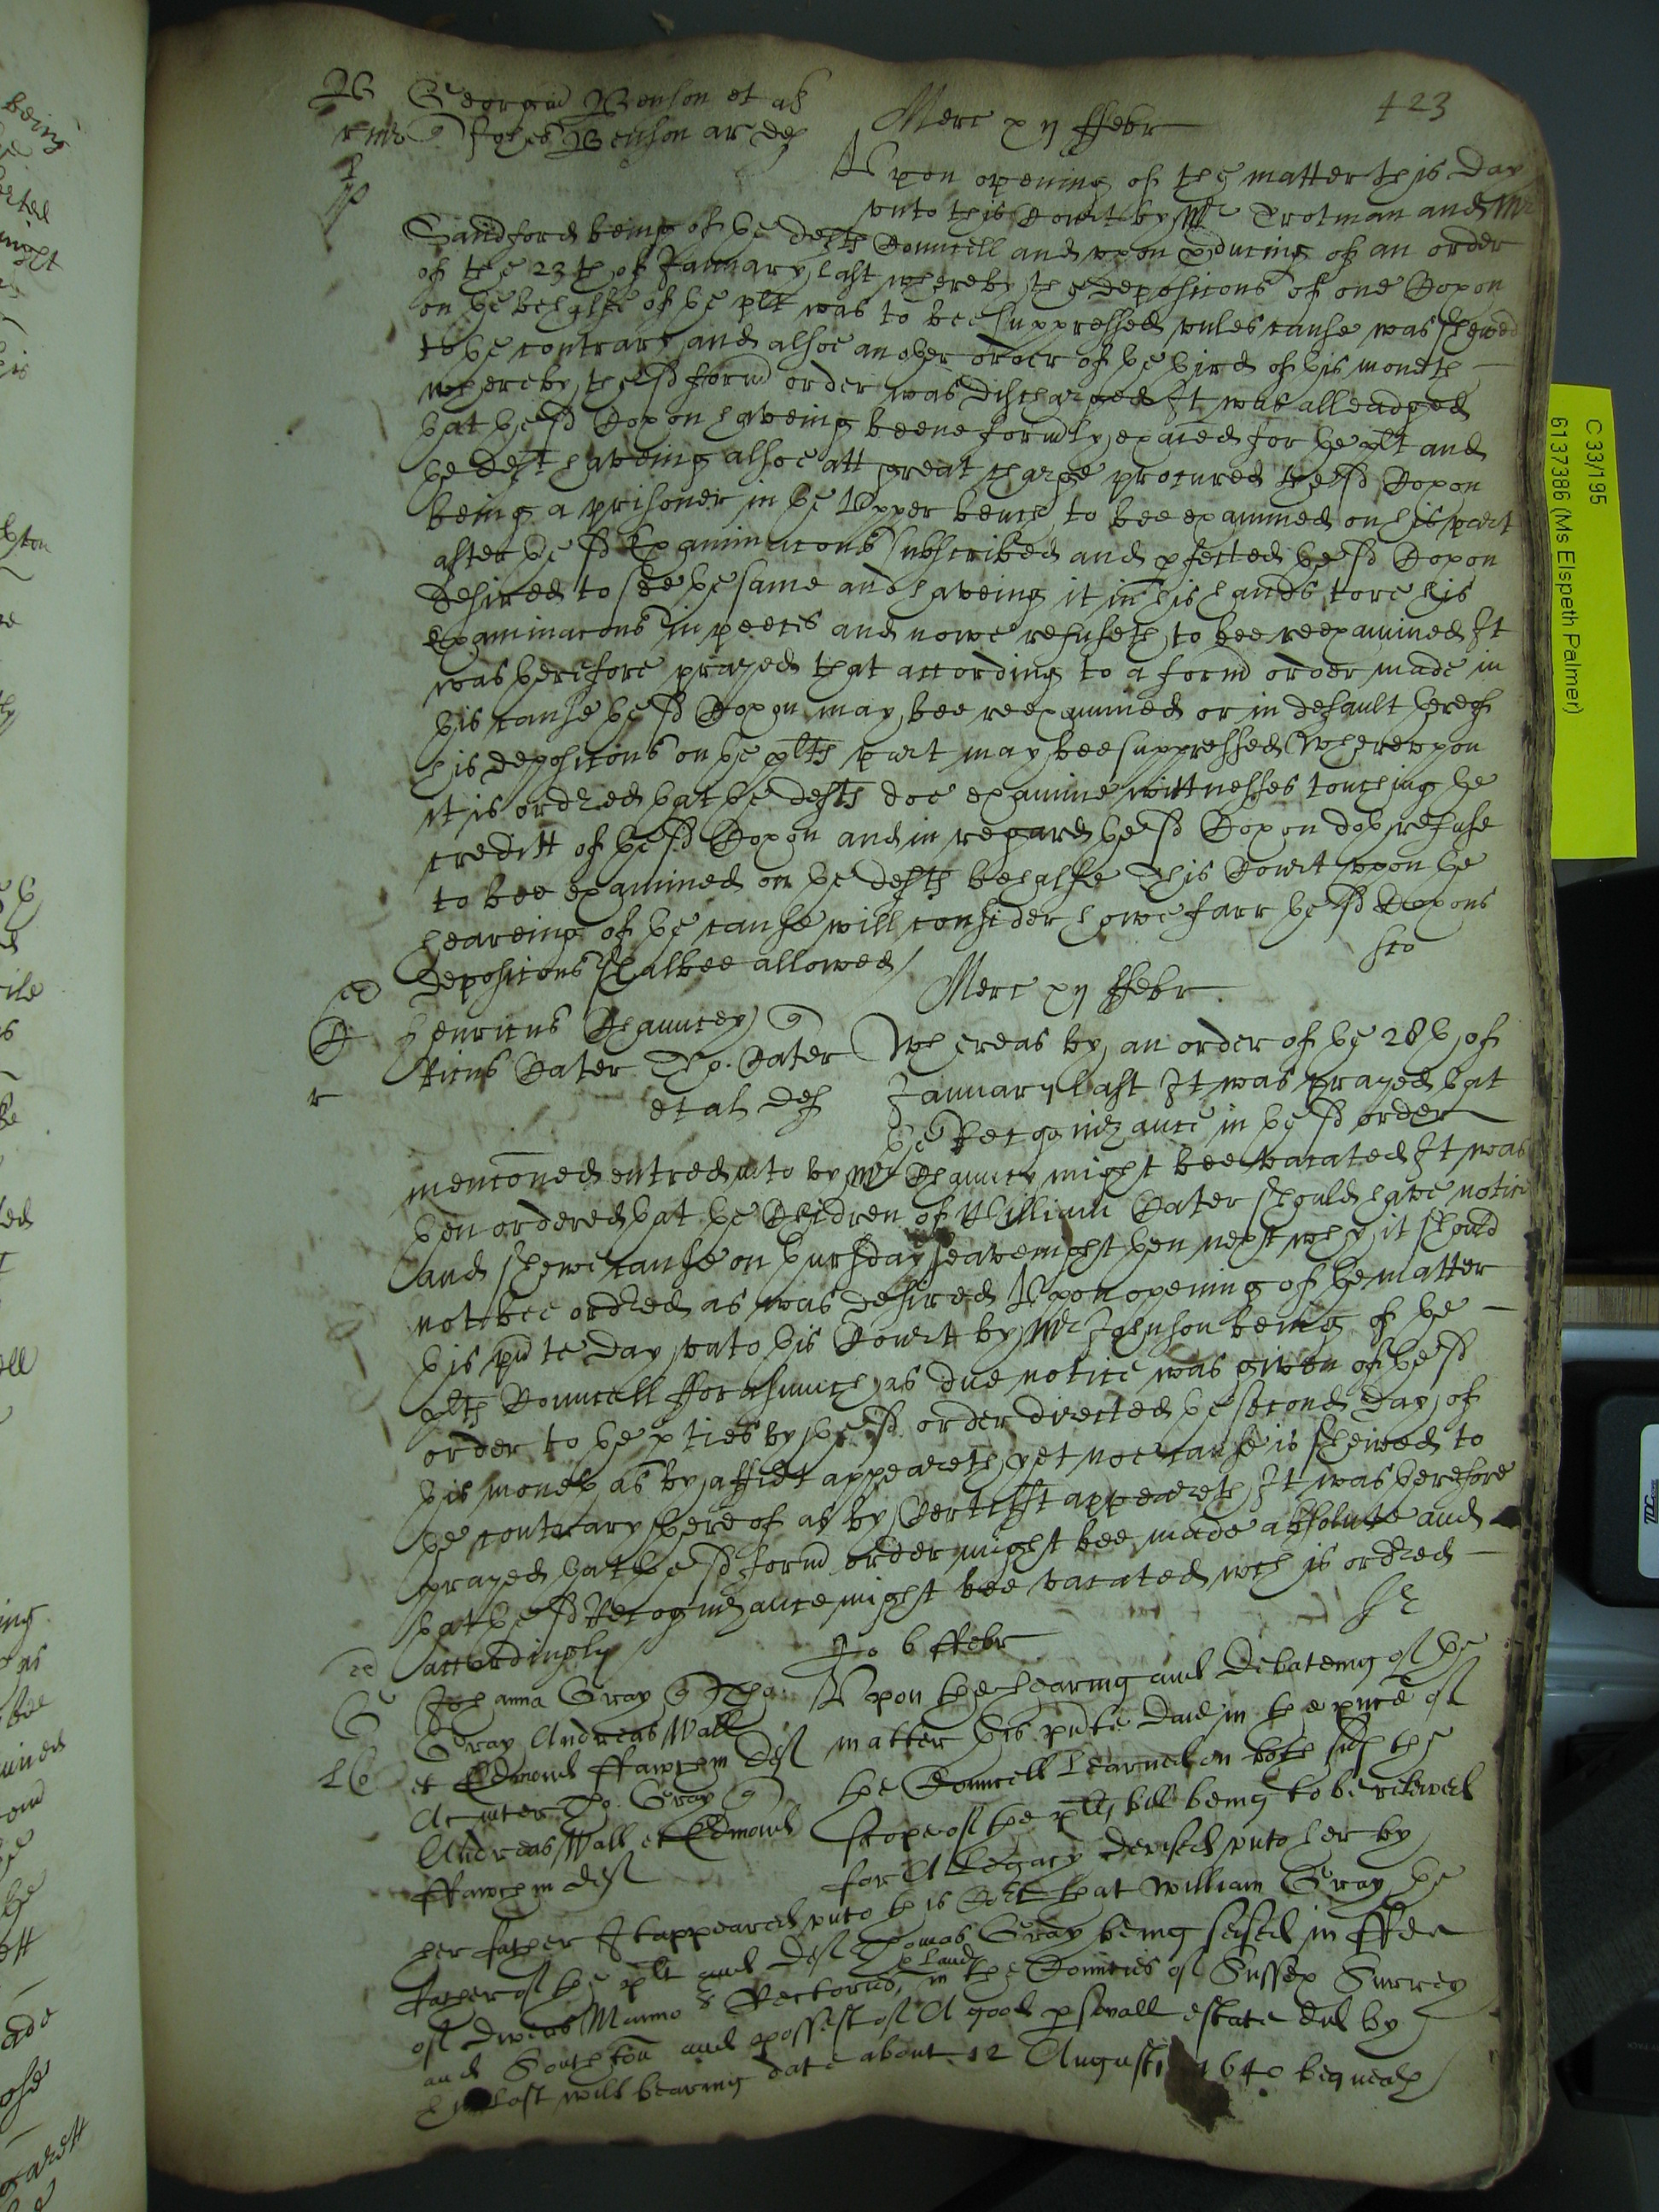 423
B Georgius Benson et al
quer Johes Benson ar def
Merc xij ffebr
Upon opening of the matter this day
unto this Court by Mr Trotman and Mr
Sandford being of ye defts Councell and upon pducing of an order
of the 23th of January last whereby the deposicons of one Coxon
on ye behalfe of ye plt was to bee suppressed unles cause was shewed
to ye contrary and alsoe another order of ye third of this moneth
whereby the sd former order was discharged It was alleadged
that ye sd Coxon haveing beene formerly exaied for ye plt and
ye deft haveing alsoe att great charge procured the sd Coxon
being a prisoner in ye Upper bench to bee examined on his part
after ye sd Examinacons subscribed and pfected ye sd Coxon
desired to see ye same and haveing it in his hands tore his
Examinacons in peeces and nowe refuseth to bee reexamined It
was therefore prayed that according to a former order made in
this cause ye sd Coxon may bee reexamined or in default thereof
his deposicons on ye plts part may bee suppressed Whereupon
it is ordred that ye defts doe examine wittnesses touching ye
creditt of ye sd Coxon and in regard ye sd Coxon doth refuse
to bee examined on ye defts behalfe This Court upon ye
heareing of ye cause will consider howe farr ye sd Coxons
deposicons shalbee allowed
Merc xij ffebr
Henricus Chauncey quer
Ricus Cater Tho. Cater
et al def
Whereas by an order of ye 28th of
January last It was prayed that
ye Recognizance in ye sd order
mencioned entred into by Mr Chauncy might bee vacated It was
then ordered that ye Children of William Cater should have notice
and shewe cause on thursday seavenight then next why it should
not bee ordred as was desired Upon opening of the matter
this pnte day unto this Court by Mr Johnson being of ye
plts Councell fforasmuch as due notice was given of ye sd
order to ye pties by ye sd order directed ye second day of
this moneth as by affidt appeareth yet noe cause is shewed to
ye contrary thereof as by Certifft appeareth It was therefore
prayed that ye sd former order might bee made absolute and
that ye sd Recognizance might bee vacated wch is ordred
accordingly
Jo 6 ffebr
G Johanna Gray quer Tho.
Gray Andreas Wall
et Edmond ffawchin def
Ac inter Tho. Gray quer
Andreas Wall et Edmond
ffawchin def
Upon the hearing and debateing of the
matter this pnte daie in the pnce of
the Councell learned on both sids the
scope of the plts bill being to be releived
for A Legacy devised unto her by
her father It appeared unto this Cort that William Gray the
father of the plt and deft Thomas Gray being seised in ffee
of divers Mannors Rectories & Land in the Counties of Sussex Surrey
and Southton and possest of A good psonall estate did by
his last will bearing date about 12 August 1640 bequeath
C 33/195
61373386 (Ms Elspeth Palmer)